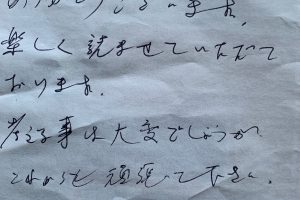 ありがとうございます。
楽しく読ませていただいて
おります。
考える事は大変でしょうが
これからも頑張って下さい。